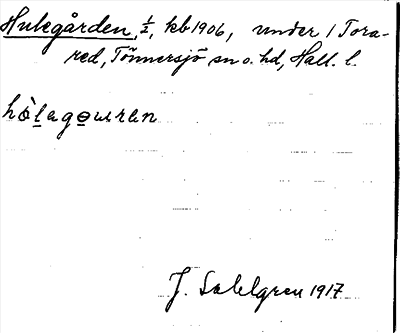 Hulegården, ½, kb 1906, under 1 Tora-
red, Tönnersjö sn o. hd, Hall. l.
hòlagɵuran
J. Sahlgren 1917